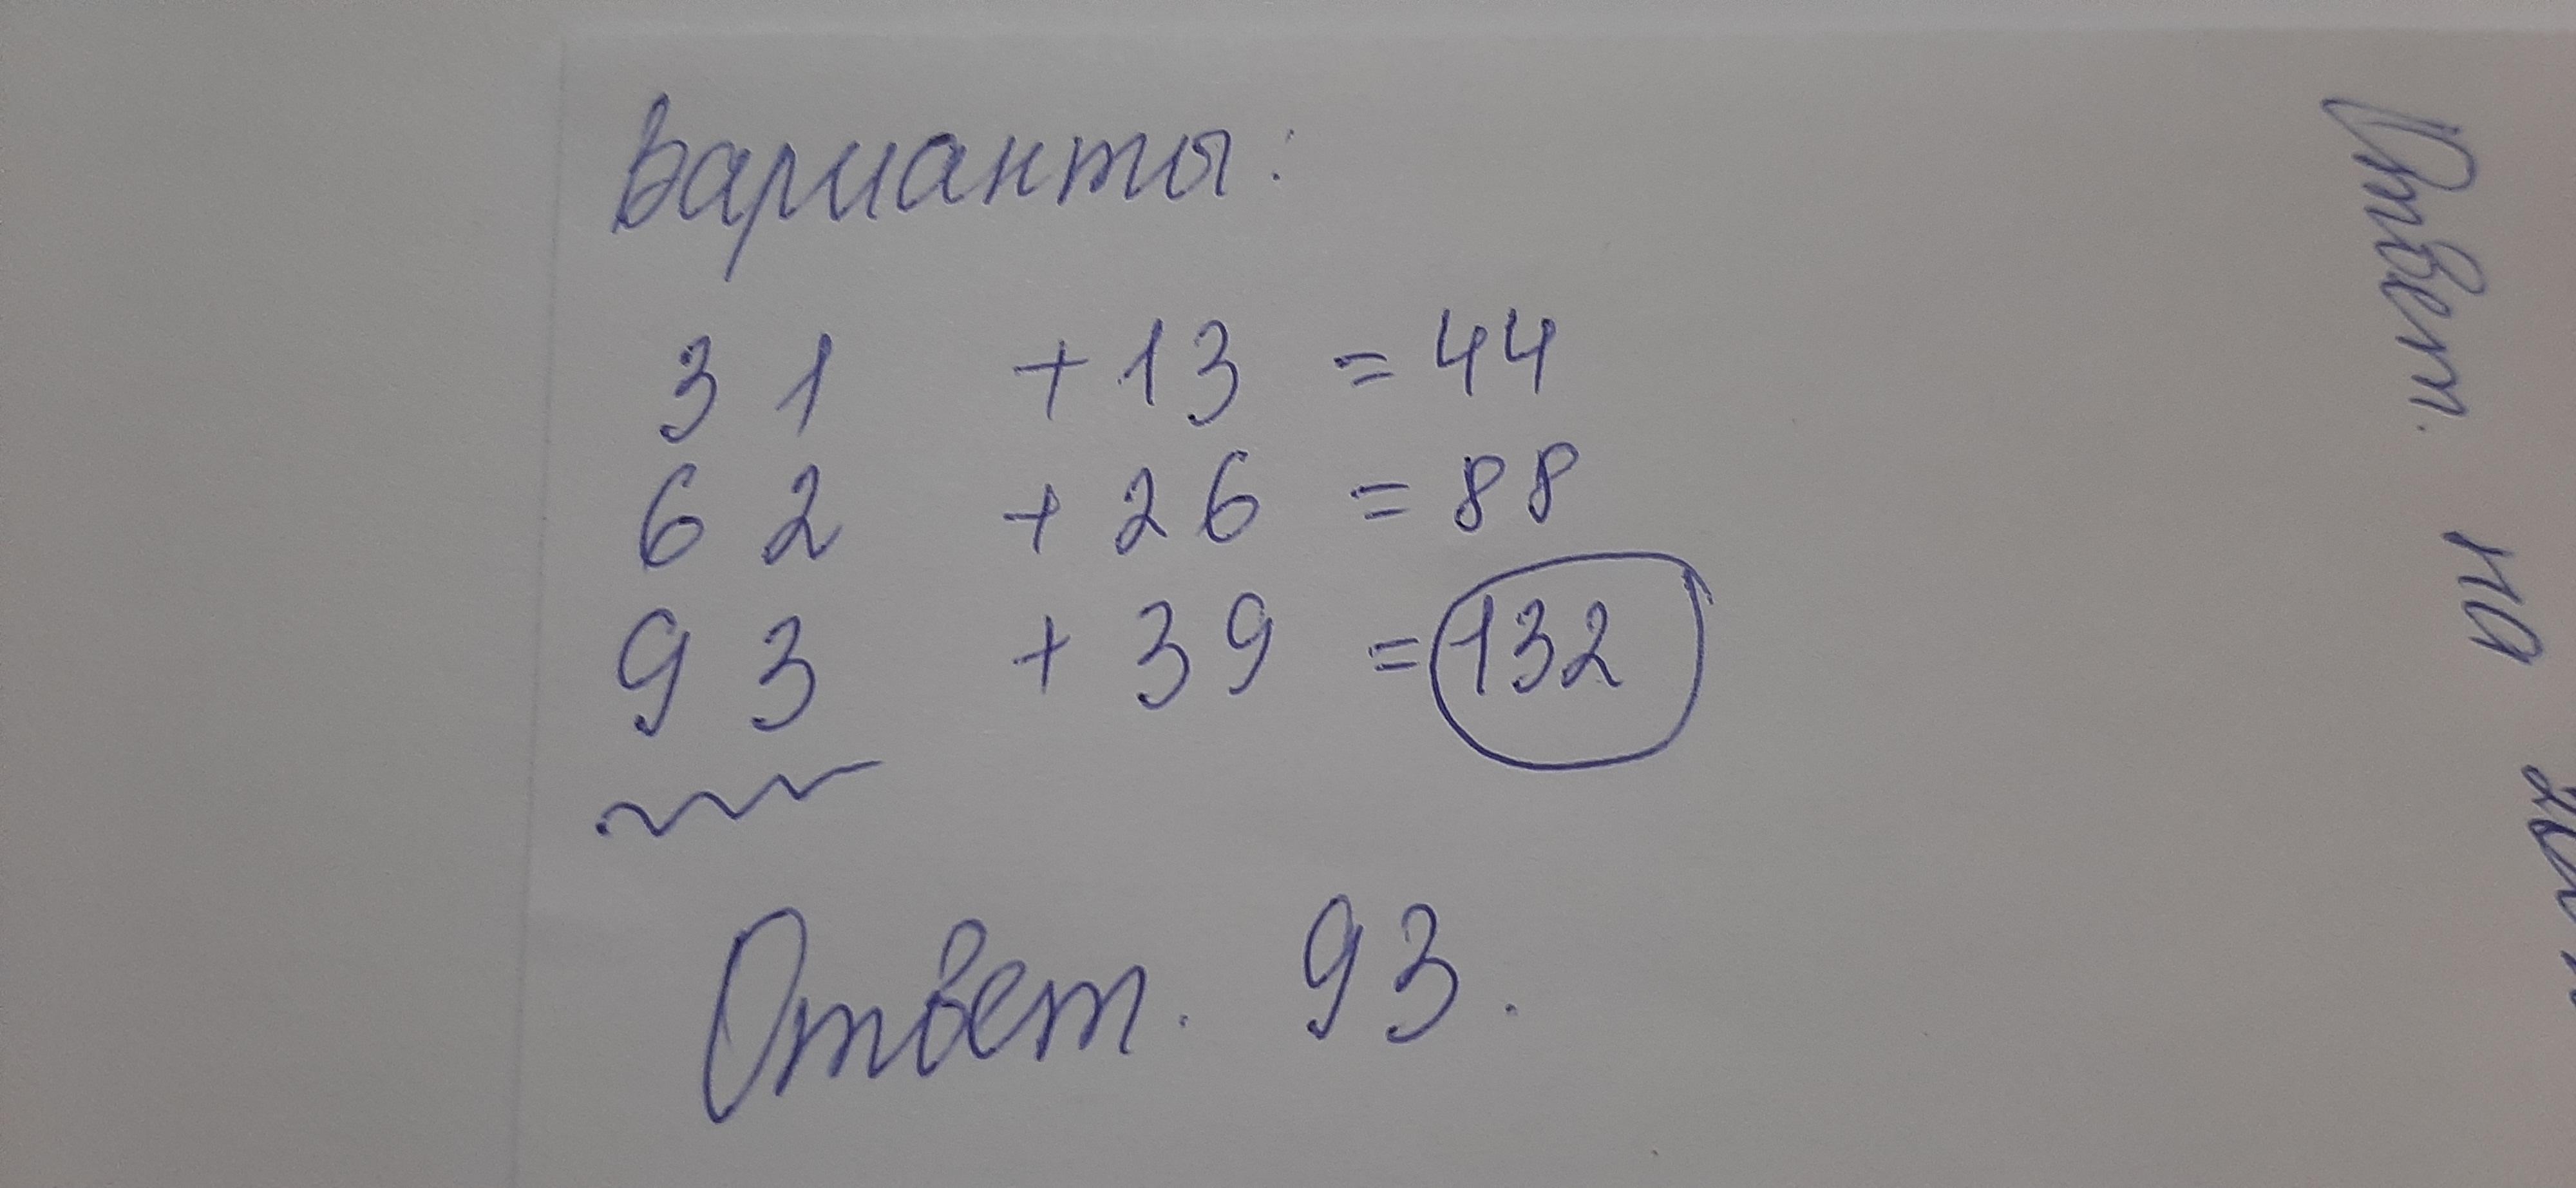 Варианты:
3 1 + 13 = 44
6 2 + 26 = 88
9 3 + 39 = 132
Ответ. 93.
Ответ. на